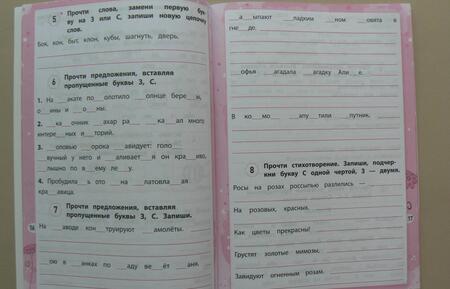 5 Прочти слова, замени первую бук-
ву на З или С, запиши новую цепочку
слов.
Бок, кон, быт, клон, кубы, шагнуть, дверь.
6 Прочти предложения, вставляя
пропущенные буквы З, С.
1. На__акате по__олотило __олнце бере__ы,
о__ины и __о__ны.
2. __ка__очник __ахар ра__ __ка__ал много
интере__ных и__торий.
3. __оловью __орока __авидует: голо__
__вучный у него и __аливает__я он кра__иво,
__лышно по в__ему ле__у.
4. Пробудила__ь ото __на __латовла__ая
кра__авица.
7 Прочти предложения, вставляя
пропущенные буквы З, С. Запиши.
На __аводе кон__труируют __амолёты.
__ою в __анках по __аду ве__ёт __аня.
16
__а__ыпают __ладким __ном __овята в
гне__де.
__офья __агадала __агадку Али__е.
В ко__мо__ __апу__тили __путник.
8 Прочти стихотворение. Запиши, подчер-
кни букву С одной чертой, З — двумя.
Росы на розах россыпью разлились —
На розовых, красных.
Как цветы прекрасны!
Грустят золотые мимозы,
Завидуют огненным розам.
17